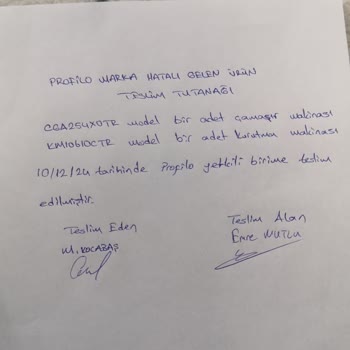 PROFİLO MARKA HATALI GELEN ÜRÜN
TESLİM TUTANAĞI
CGA254X0TR model bir adet çamaşır makinası
KM10610CTR model bir adet kurutma makinası
10/12/24 tarihinde Profilo yetkili birime teslim
edilmiştir.
Teslim Eden
M. KOCABAŞ
Teslim Alan
Emre MUTLU